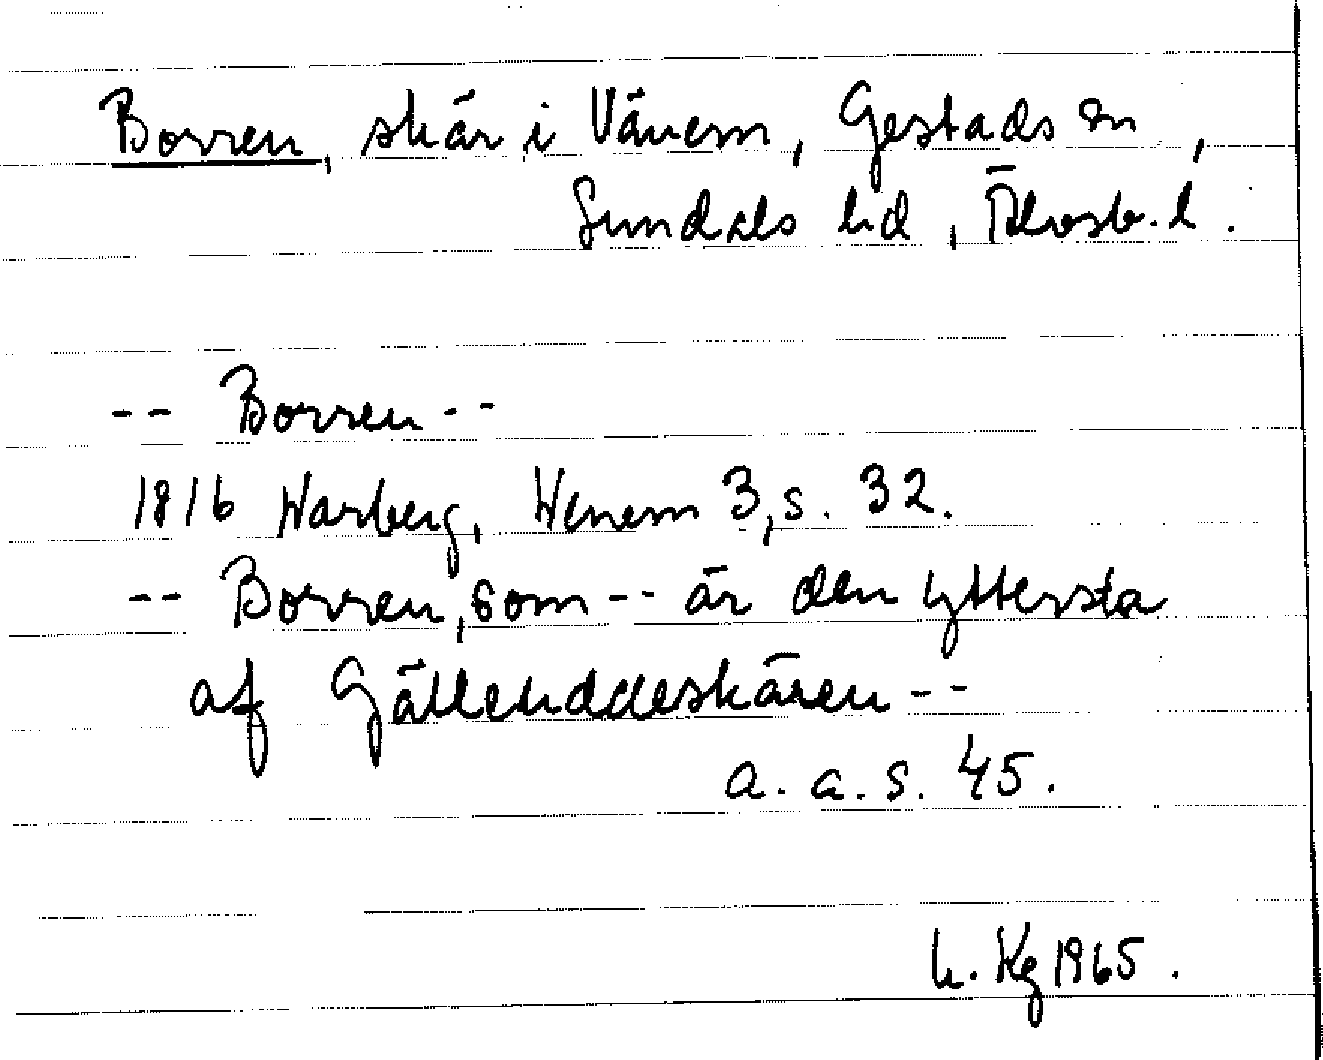 Borren, skär i Vänern, Gestads sn,
Sundals hd, Älvsb. l.
-- Borren --
1816 Warberg, Wenern 3, s. 32.
-- Borren, som -- är den yttersta
af Gälleuddeskären --
a. a. s. 45.
L. Kg 1965.